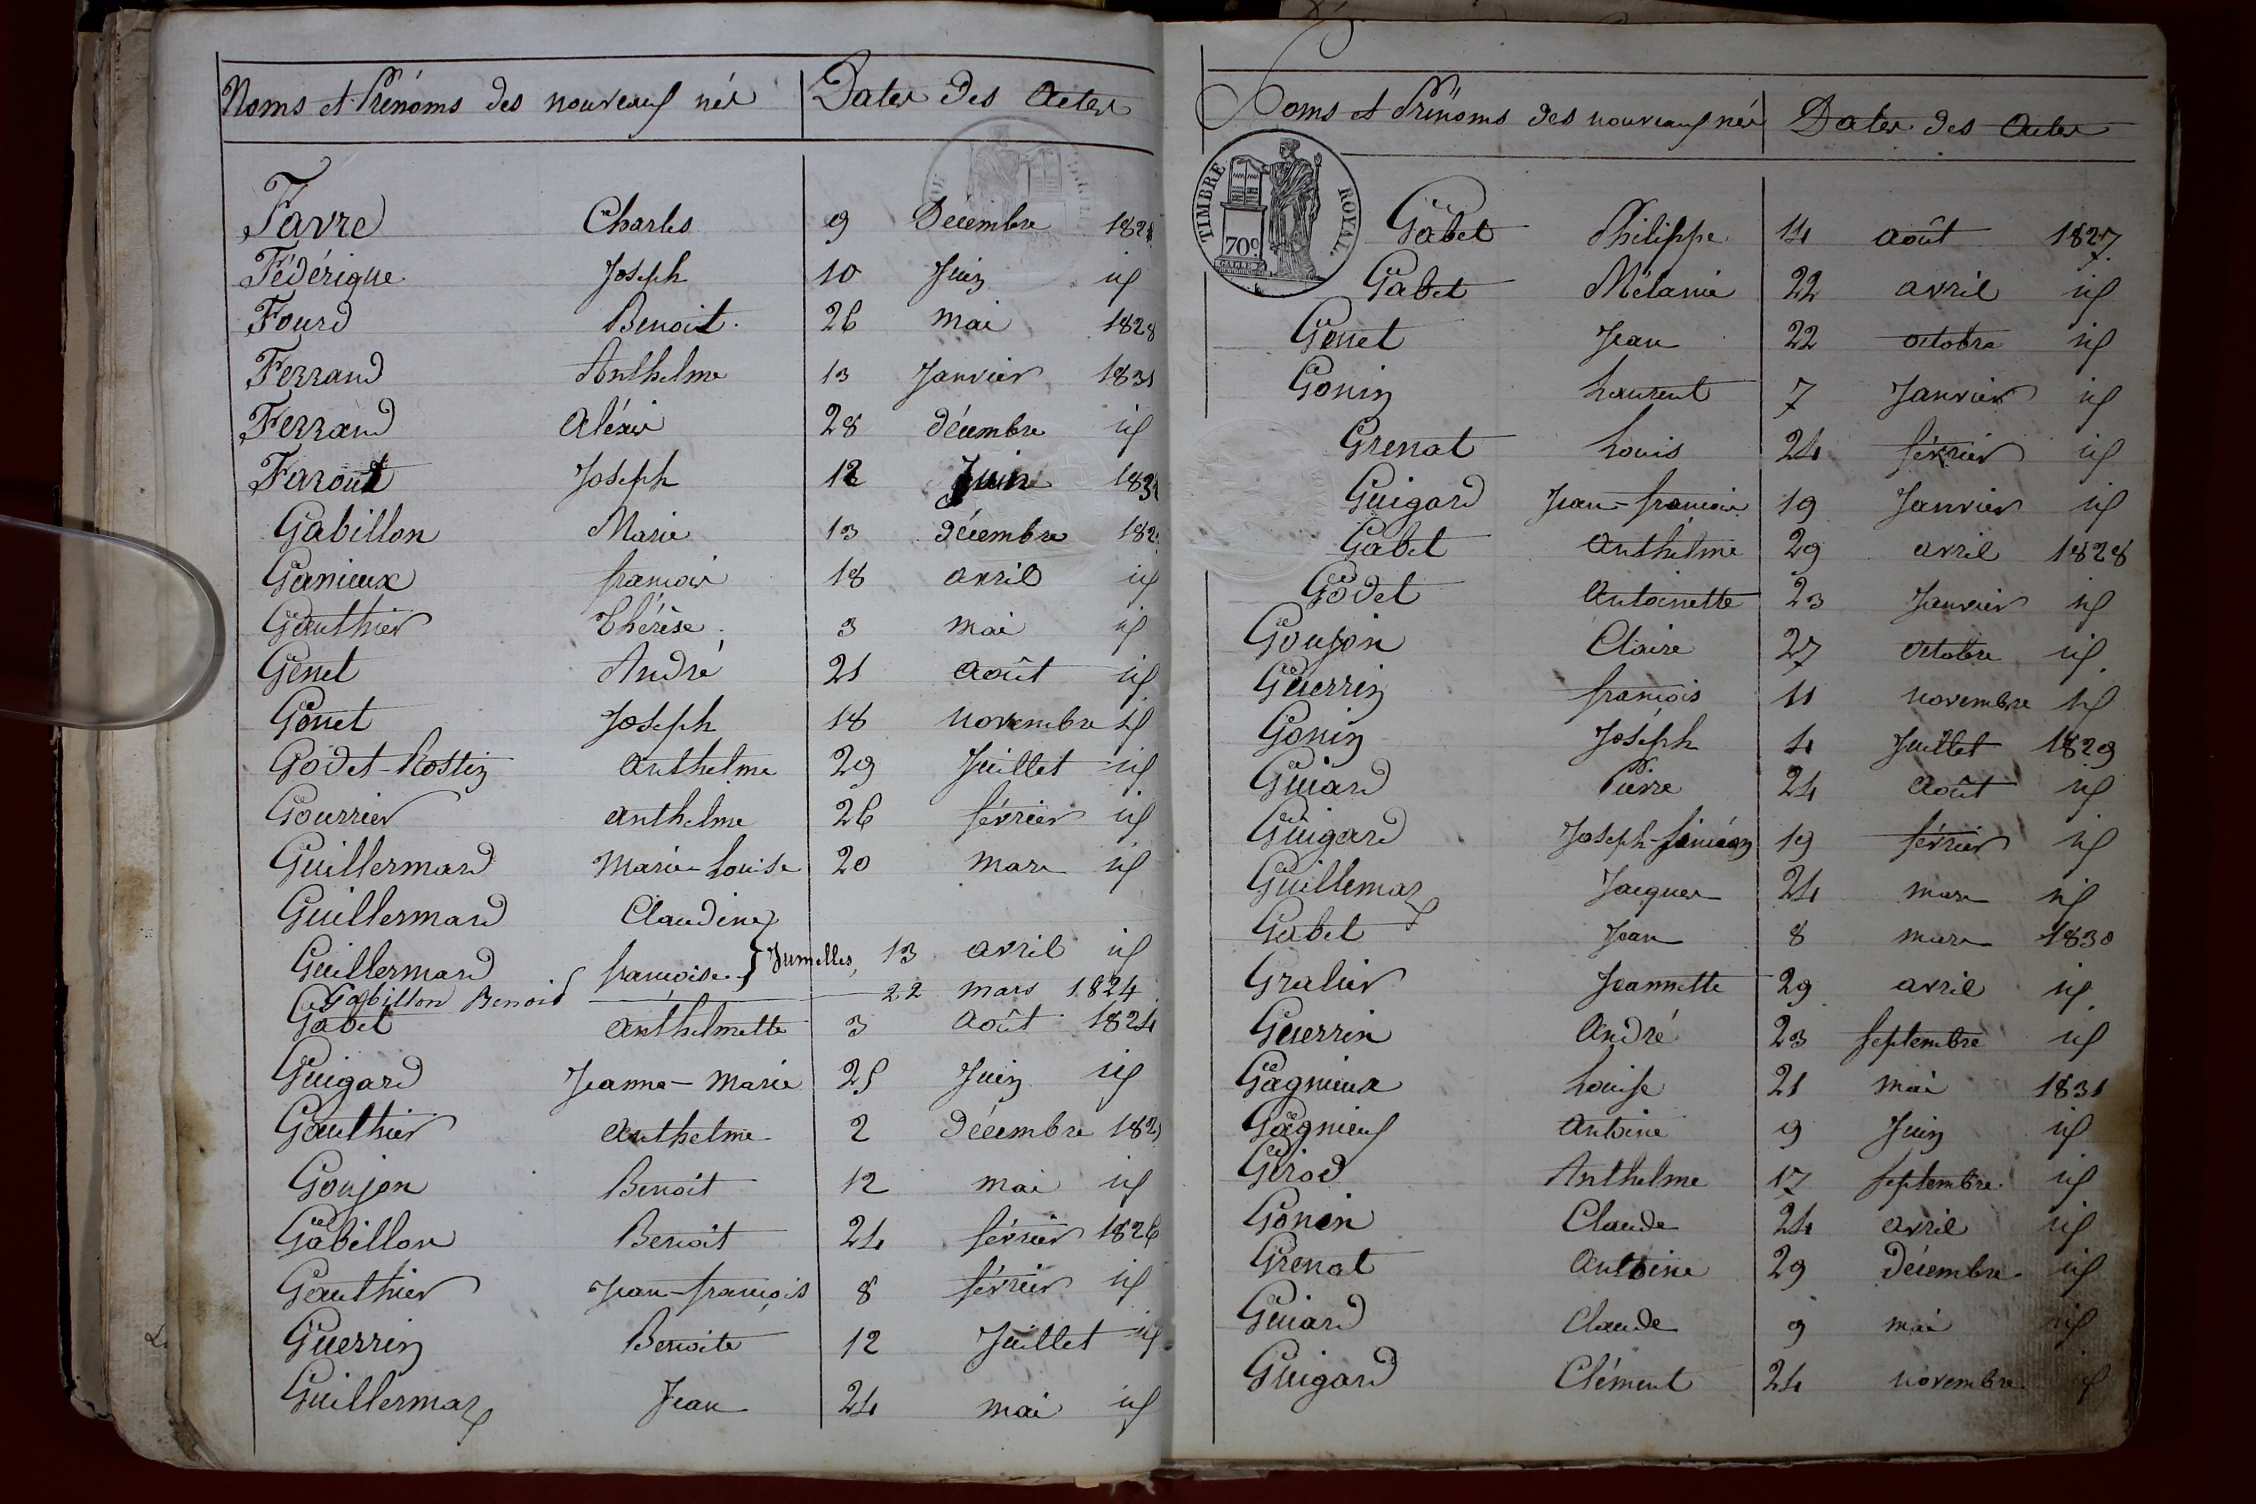 Noms et Prénoms des nouveaux nés Dates des Actes
Favre Charles 9 Décembre
Fédérique Joseph 10 Juin id
Fourd Benoit 26 mai 1828
Ferrand Anthelme 13 Janvier 1831
Ferrand Aléxis 28 décembre id
Joseph 12 Juin
Gabillon Marie 13 décembre
Ganieux françois 18 avril id
Gauthier Thérèse 3 mai id
Genet André 21 Août id
Gonet Joseph 18 novembre id
Godet-Rostin Anthelme 29 Juillet id
Gourrier Anthelme 26 février id
Guillermard Marie-Louise 20 mars id
Guillermard Claudine
Guillermard françoise } Jumelles, 13 avril id
Gabillon Benoit 22 mars 1824
Gabet Anthelmette 3 Août 1824
Guigard Jeanne-Marie 25 Juin id
Gauthier Anthelme 2 décembre
Goujon Benoit 12 mai id
Gabillon Benoit 24 février 1826
Gauthier Jean-françois 8 février id
Guerrin Benoite 12 Juillet id
Guillermaz Jean 24 mai id
Noms et Prénoms des nouveaux nés Dates des Actes
TIMBRE ROYAL
70c
Gabet Philippe 14 août 1827
Gabet Mélanie 22 avril id
Genet Jean 22 octobre id
Gonin Laurent 7 Janvier id
Grenat Louis 24 février id
Guigard Jean-françois 19 Janvier id
Gabet Anthelme 29 avril 1828
Godet Antoinette 23 Janvier id
Goujon Claire 27 octobre id
Guerrin françois 11 novembre id
Gonin Joséph 4 Juillet 1829
Guiard Pierre 24 Août id
Guigard Joseph-Siméon 19 février id
Guillemaz Jacques 24 mars id
Gabet Jean 8 mars 1830
Gralier Jeannette 29 avril id
Guerrin André 23 septembre id
Gagnieux Louise 21 mai 1831
Gagnieux Antoine 9 Juin id
Girod Anthelme 17 septembre id
Gonin Claude 24 avril id
Grenat Antoine 29 Décembre id
Guiard Claude 9 mai id
Guigard Clément 24 novembre id